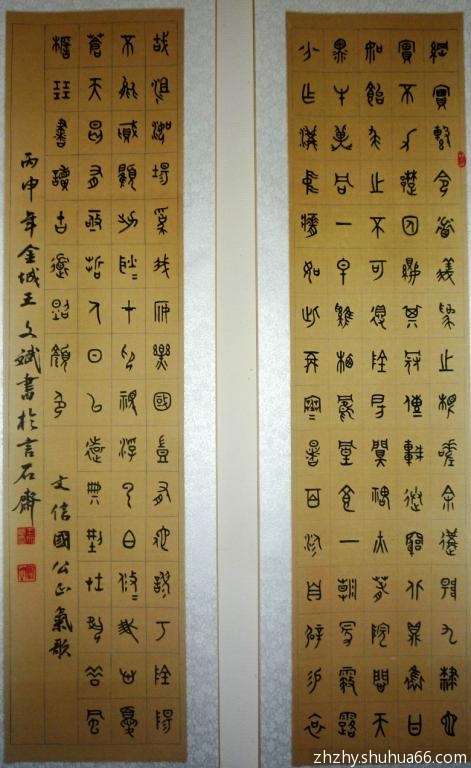 綱實繫命道義為之根嗟余遘陽九隸也
實不力楚囚纓其冠傳車送窮北鼎鑊甘
如飴求之不可得陰房闃鬼火春院閟天
黑牛驥同一皁雞棲鳳凰食一朝蒙霧露
分作溝中瘠如此再寒暑百沴自辟易哀
哉沮洳場為我安樂國豈有他繆巧陰陽
不能賊顧此耿〻在仰視浮雲白悠〻我心憂
蒼天曷有極哲人日已遠典刑在夙昔風
檐展書讀古道照顏色
文信國公正氣歌
丙申年金城王文斌書於言石齋
zhzhy.shuhua66.com